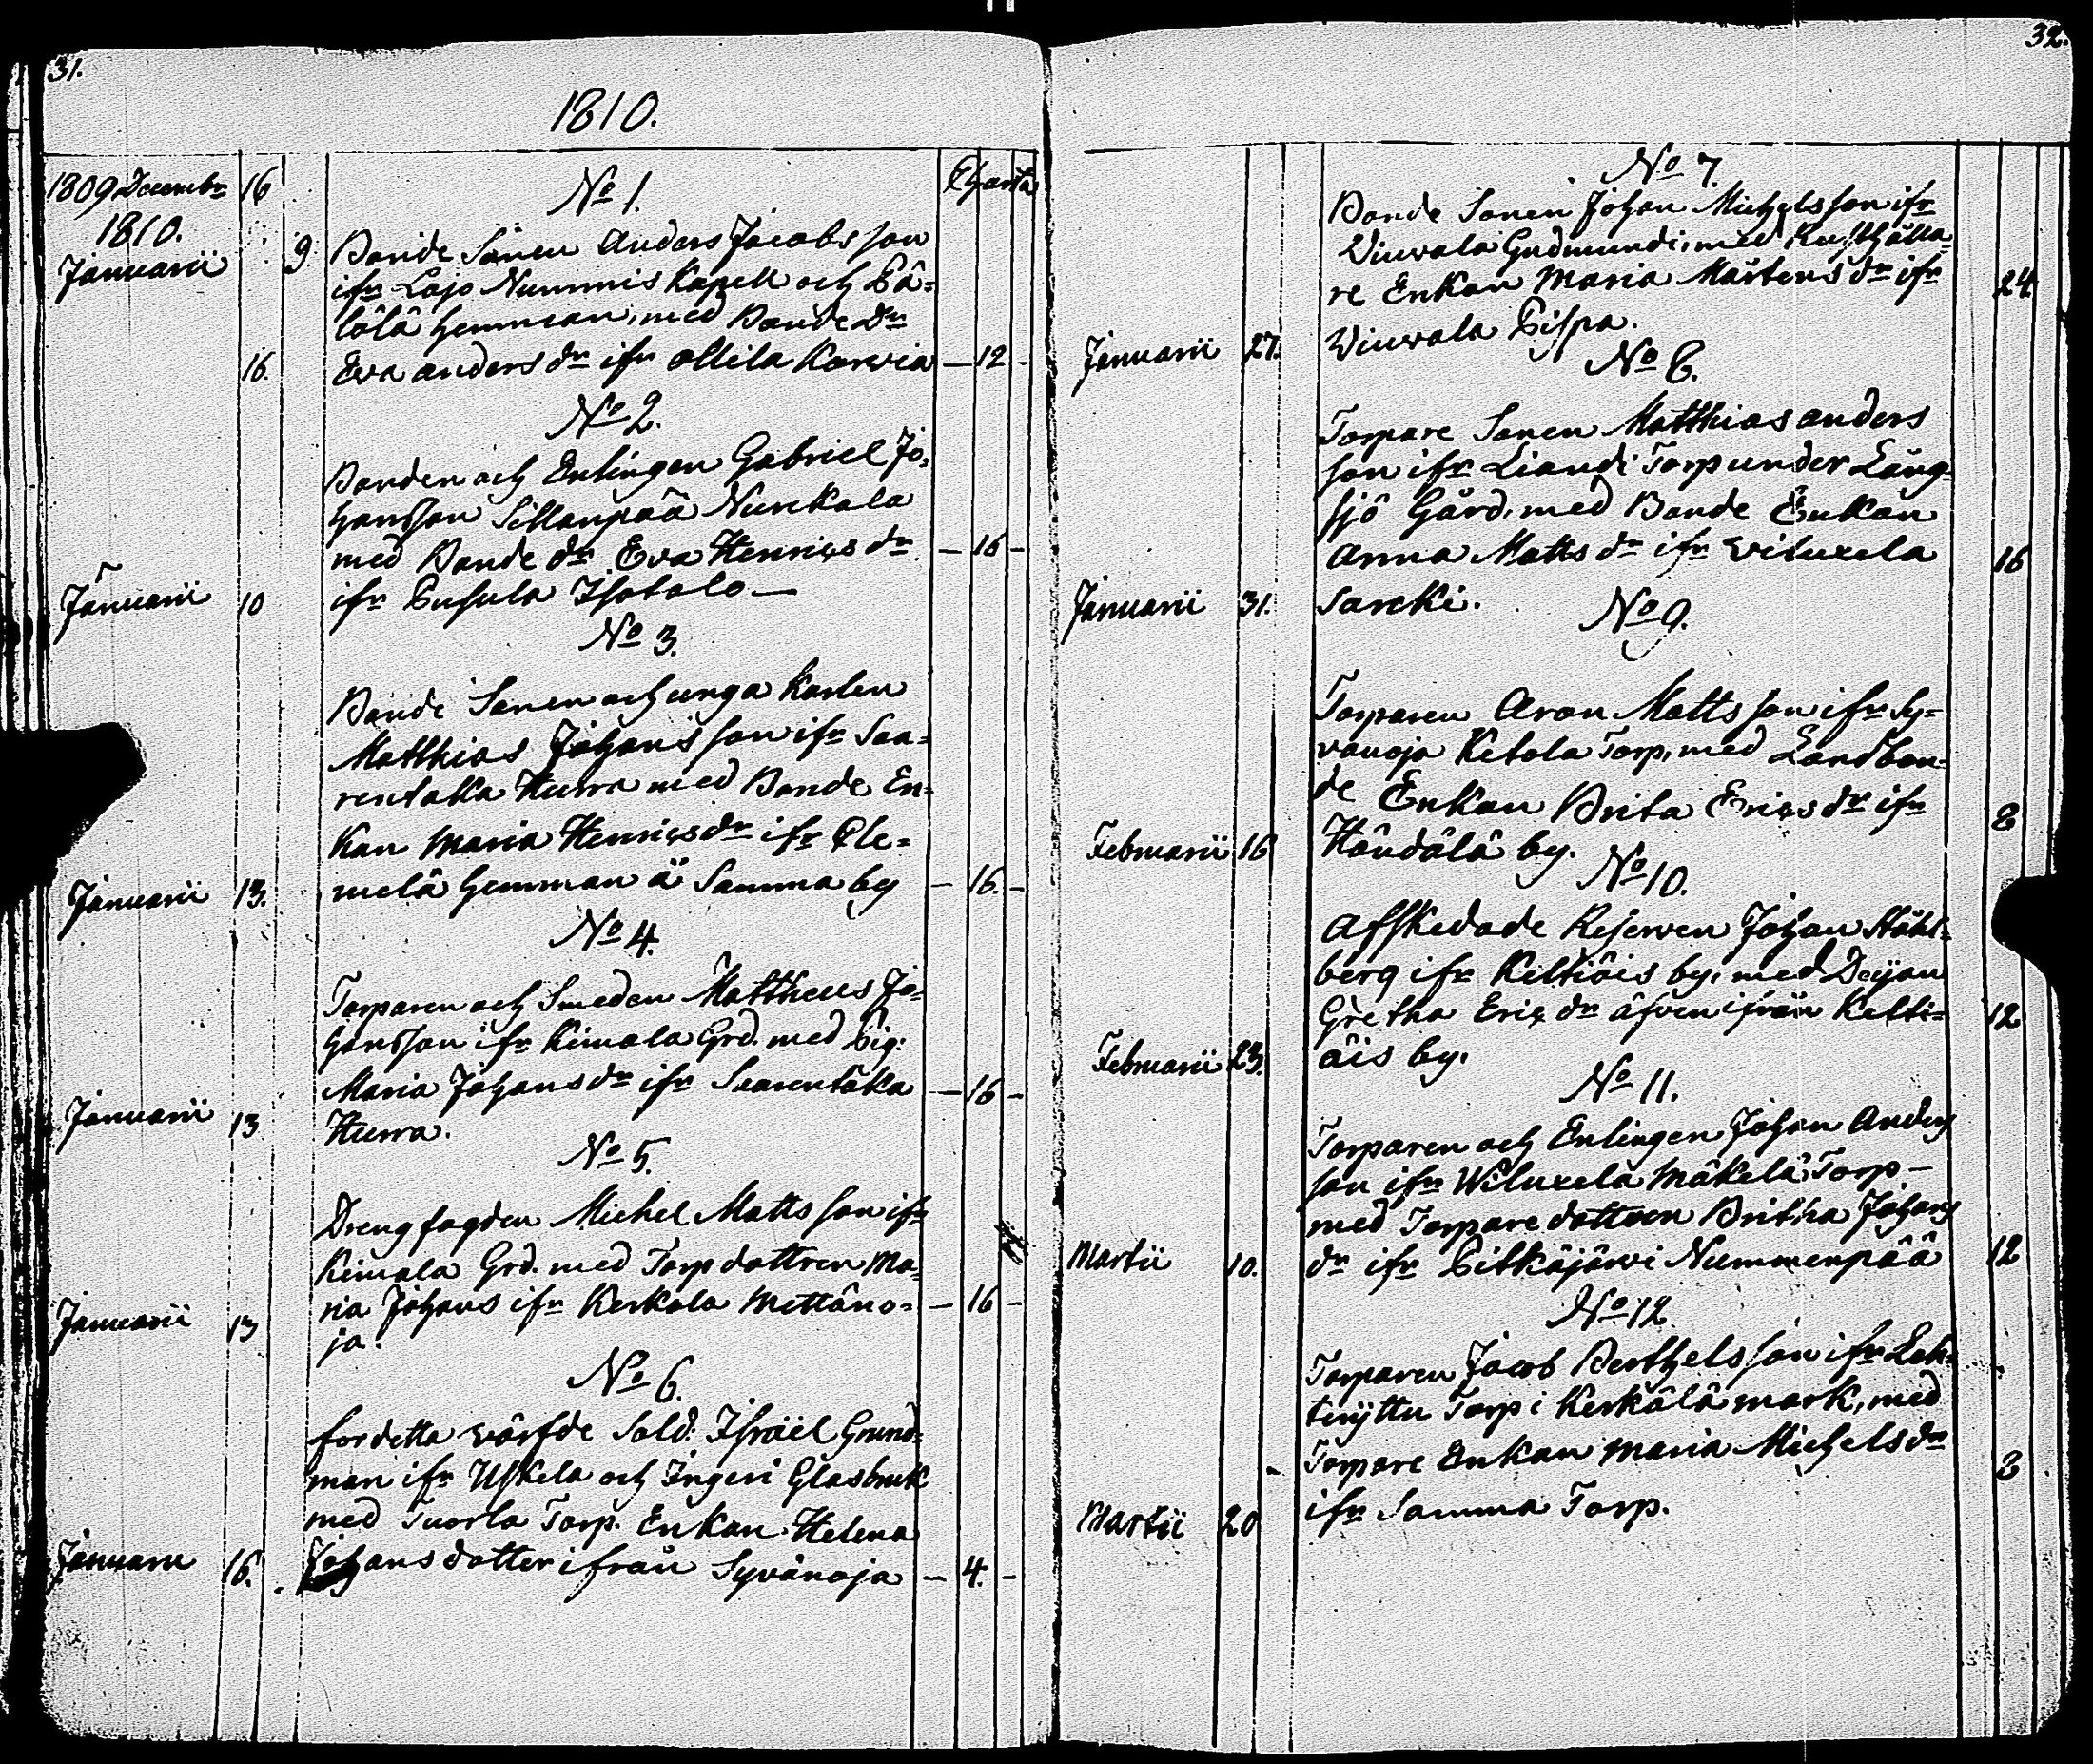 31.
1810.
1809 Decembr 16
1810.
Januarii 9
Charta
No 1.
Bonde Sonen Anders Jacobsson
ifr Lojo Nummis Kapell och Pä-
lölä hemman, med Bonde Dr
16. Eva Anders dr ifr Ollila Korvia — 12 —
No 2.
Bonden och Enlingen Gabriel Jo-
hansson Sillanpää Nurckala
med Bonde dr Eva Henrics dr — 16 —
Januarii 10 ifr Pusula Isotalo —
No 3.
Bonde Sonen och unga Karlen
Matthias Johansson ifr Saa-
rentaka Hurra med Bonde En-
kan Maria Henricsdr ifr Ple-
Januarii 13. melä hemman ä Samma by — 16. —
No 4.
Torparen och Smeden Mattheus Jo-
hansson ifr Kimala Grd. med Pig:
Maria Johansdr ifr Saarentaka — 16 —
Januarii 13 Hurra.
No 5.
Drengfogden Michel Matts son ifr
Kimala Grd. med Torp dottren Ma-
Januarii 13 ria Johans ifr Kerkola Mettäno- — 16 —
ja.
No 6.
fordetta värfde Sold: Israël Grund-
man ifr Uskela och Ingeri Glasbruk
med Tuorla Torp. Enkan Helena
Januarii 16. Johansdotter ifrån Syvänoja — 4. —
32.
No 7.
Bonde Sonen Johan Michelsson ifr
Viuvala Gudmundi, med Rusthålla-
re Enkan Maria Mårtens dr ifr 24
Januarii 27. Viuvala Pispa.
No 8.
Torpare Sonen Matthias Anders
son ifr Liandi Torp under Lång-
sjö Gård, med Bonde Enkan
Anna Matts dr ifr Viluxela 16
Januarii 31. Sarcki.
No 9.
Torparen Aron Mattsson ifr Sy-
vänoja Ketola Torp, med Landbon-
de Enkan Brita Erics dr ifr 8
Februarii 16 Höndölä by.
No 10.
Afskedade Reserven Johan Ståhl-
berg ifr Keltiäis by, med Deijan
Gretha Eric dr äfven ifrån Kelti- 12
Februarii 23. äis by.
No 11.
Torparen och Enlingen Johan Anders
son ifr Viluxela Mäkelä Torp —
med Torpare dottren Britha Johans
Martii 10. dr ifr Pitkäjärvi Nummenpää 12
No 12
Torparen Jacob Berthelsson ifr Leh-
tiryttu Torp i Kerkälä mark, med
Torpare Enkan Maria Michelsdr 8
Martii 20 ifr Samma Torp.